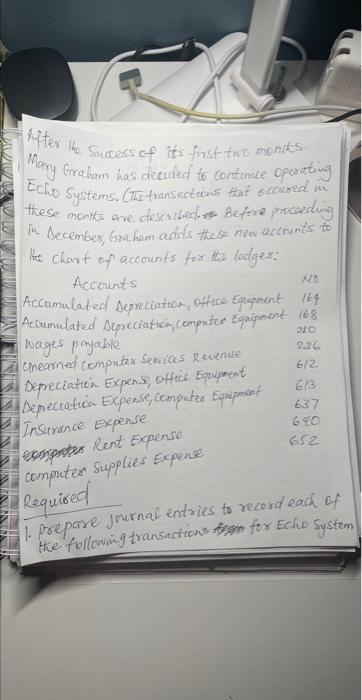 After the Success of its first two months.
Mary Graham has decided to continue operating
Echo Systems. (The transactions that occured in
these months are described Before proceeding
in December, Graham adds these new accounts to
the chart of accounts for the ledger:
Accounts No
Accumulated Depreciation, Office Equipment 164
Accumulated Depreciation, computer Equipment 168
wages payable 210
Unearned computer Services Revenue 236
Depreciation Expense, office Equipment 612
Depreciation Expense, computer Equipment 613
Insurance Expense 637
Rent Expense 640
computer Supplies Expense 652
Required
1. Prepare Journal entries to record each of
the following transactions for Echo System